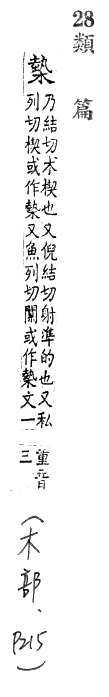 28 類篇
槷
乃結切木楔也又倪結切射準的也又私
列切楔或作槷又魚列切闑或作槷文一
重音
三
(木部、P215)